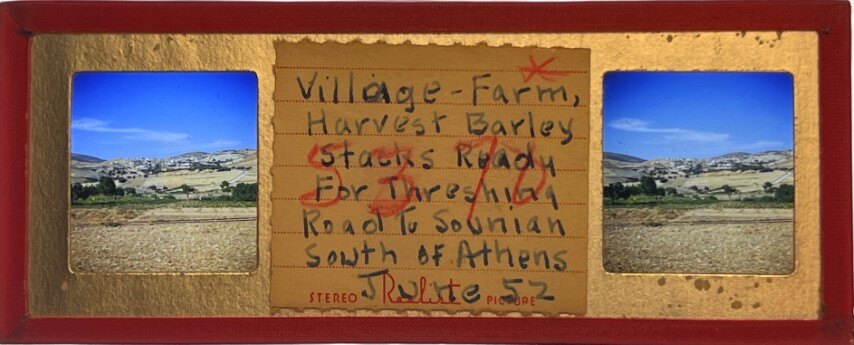 *
Village-Farm,
Harvest Barley
Stacks Ready
For Threshing
Road To Sounian
South of Athens
June 52
STEREO Realist PICTURE